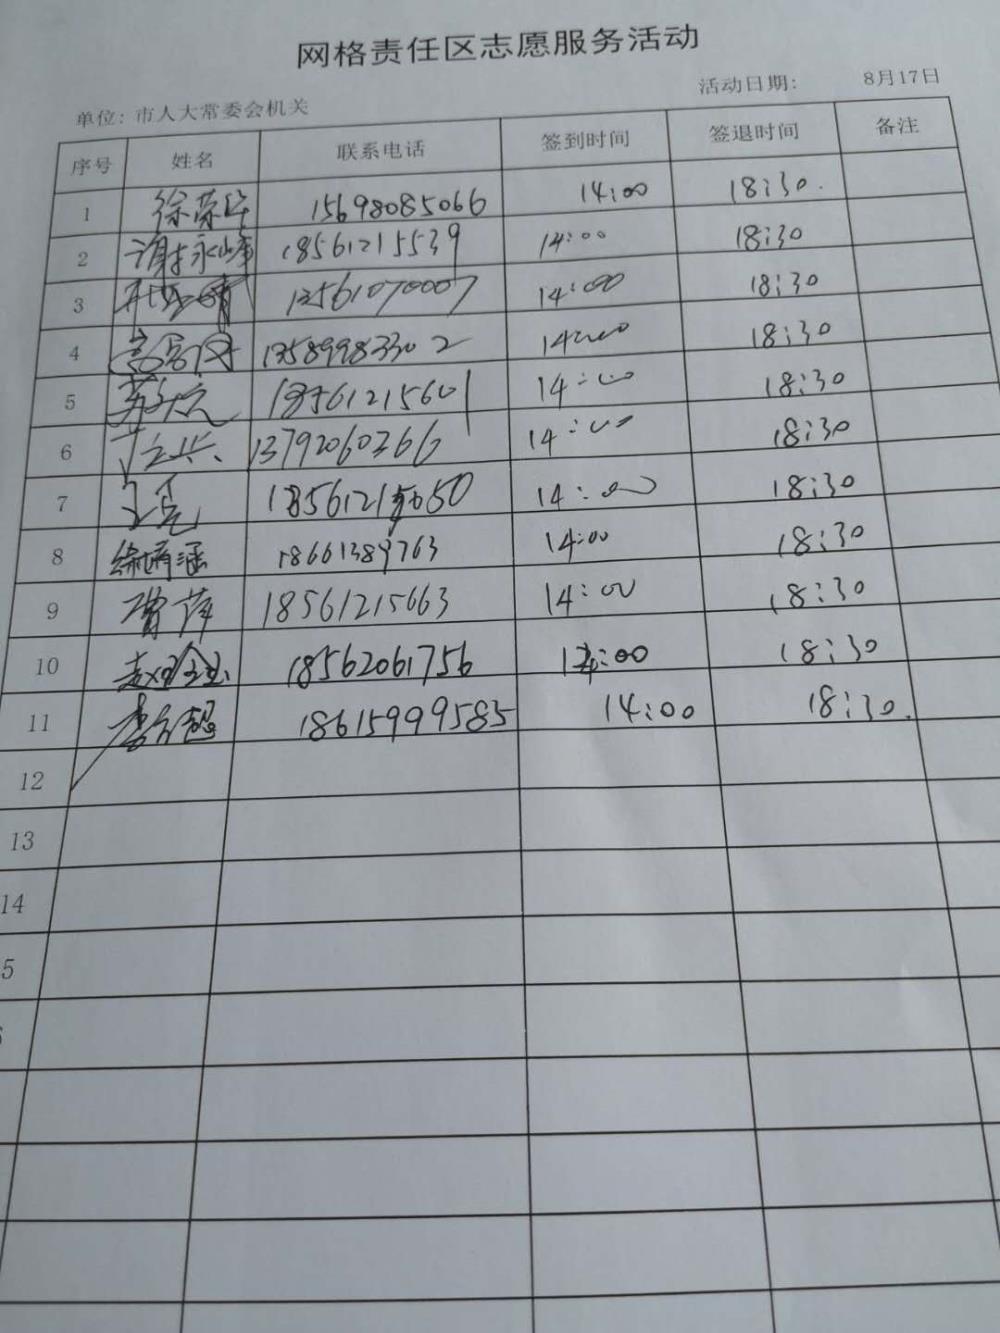 网格责任区志愿服务活动
单位: 市人大常委会机关 活动日期: 8月17日
序号 姓名 联系电话 签到时间 签退时间 备注
1 徐荣 15698085066 14:00 18:30.
2 谢永峰 18561215539 14:00 18:30
3 13561070007 14:00 18:30
4 13589983302 14:00 18:30
5 18561215601 14:00 18:30
6 13792060366 14:00 18:30
7 18561215050 14:00 18:30
8 18661389763 14:00 18:30
9 曹萍 18561215663 14:00 18:30
10 赵 18562061756 14:00 18:30
11 李 18615999585 14:00 18:30.
12
13
14
5